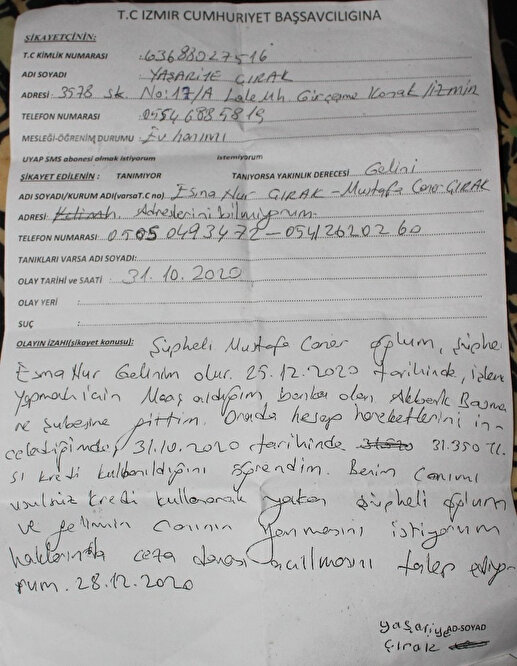 T.C İZMİR CUMHURİYET BAŞSAVCILIGINA
ŞİKAYETÇİNİN:
T.C KİMLİK NUMARASI : 63688027516
ADI SOYADI : YAŞARİYE ÇIRAK
ADRESİ: 3578 sk. No: 17/A Lale Mh. Gürçeşme Konak / İzmir
TELEFON NUMARASI 0554 6885819
MESLEĞİ-ÖĞRENİM DURUMU : Ev hanımı
UYAP SMS abonesi olmak istiyorum istemiyorum
ŞİKAYET EDİLENİN : TANIMIYOR TANIYORSA YAKINLIK DERECESİ Gelini
ADI SOYADI/KURUM ADI(varsaT.C no) Esma Nur ÇIRAK - Mustafa Caner ÇIRAK
ADRESİ Adreslerini bilmiyorum.
TELEFON NUMARASI: 0505 0493472 - 0541 2620260
TANIKLARI VARSA ADI SOYADI:
OLAY TARİHİ ve SAATİ : 31.10.2020
OLAY YERİ :
SUÇ :
OLAYIN İZAHI(şikayet konusu): Şüpheli Mustafa Caner oğlum, şüphe
Esma Nur Gelinim olur. 25.12.2020 tarihinde, işlem
Yapmak için Maaş aldığım, banka olan Akbank
ne şubesine gittim. Orada hesap hareketlerini in-
celediğimde, 31.10.2020 tarihinde 31.350 TL.
si kredi kullanıldığını öğrendim. Benim Canımı
usulsüz kredi kullanarak yakan şüpheli oğlum
ve gelinin canının Yanmasını istiyorum
haklarında ceza davası açılmasını talep ediyo-
rum. 28.12.2020
yaşariye AD-SOYAD
çırak